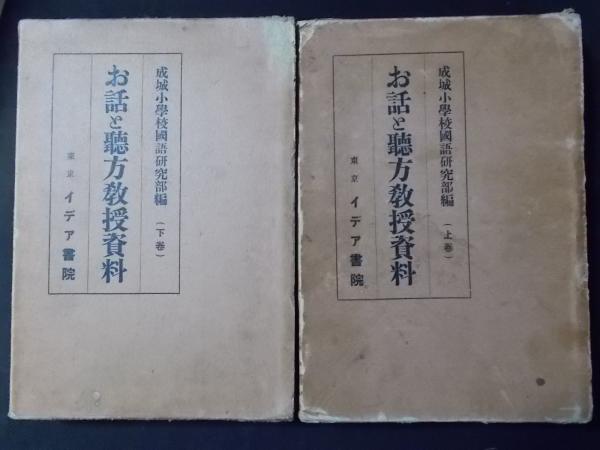 成城小學校國語研究部編
(上卷)
お話と聽方敎授資料
東京 イデア書院
成城小學校國語研究部編
(下卷)
お話と聽方敎授資料
東京 イデア書院